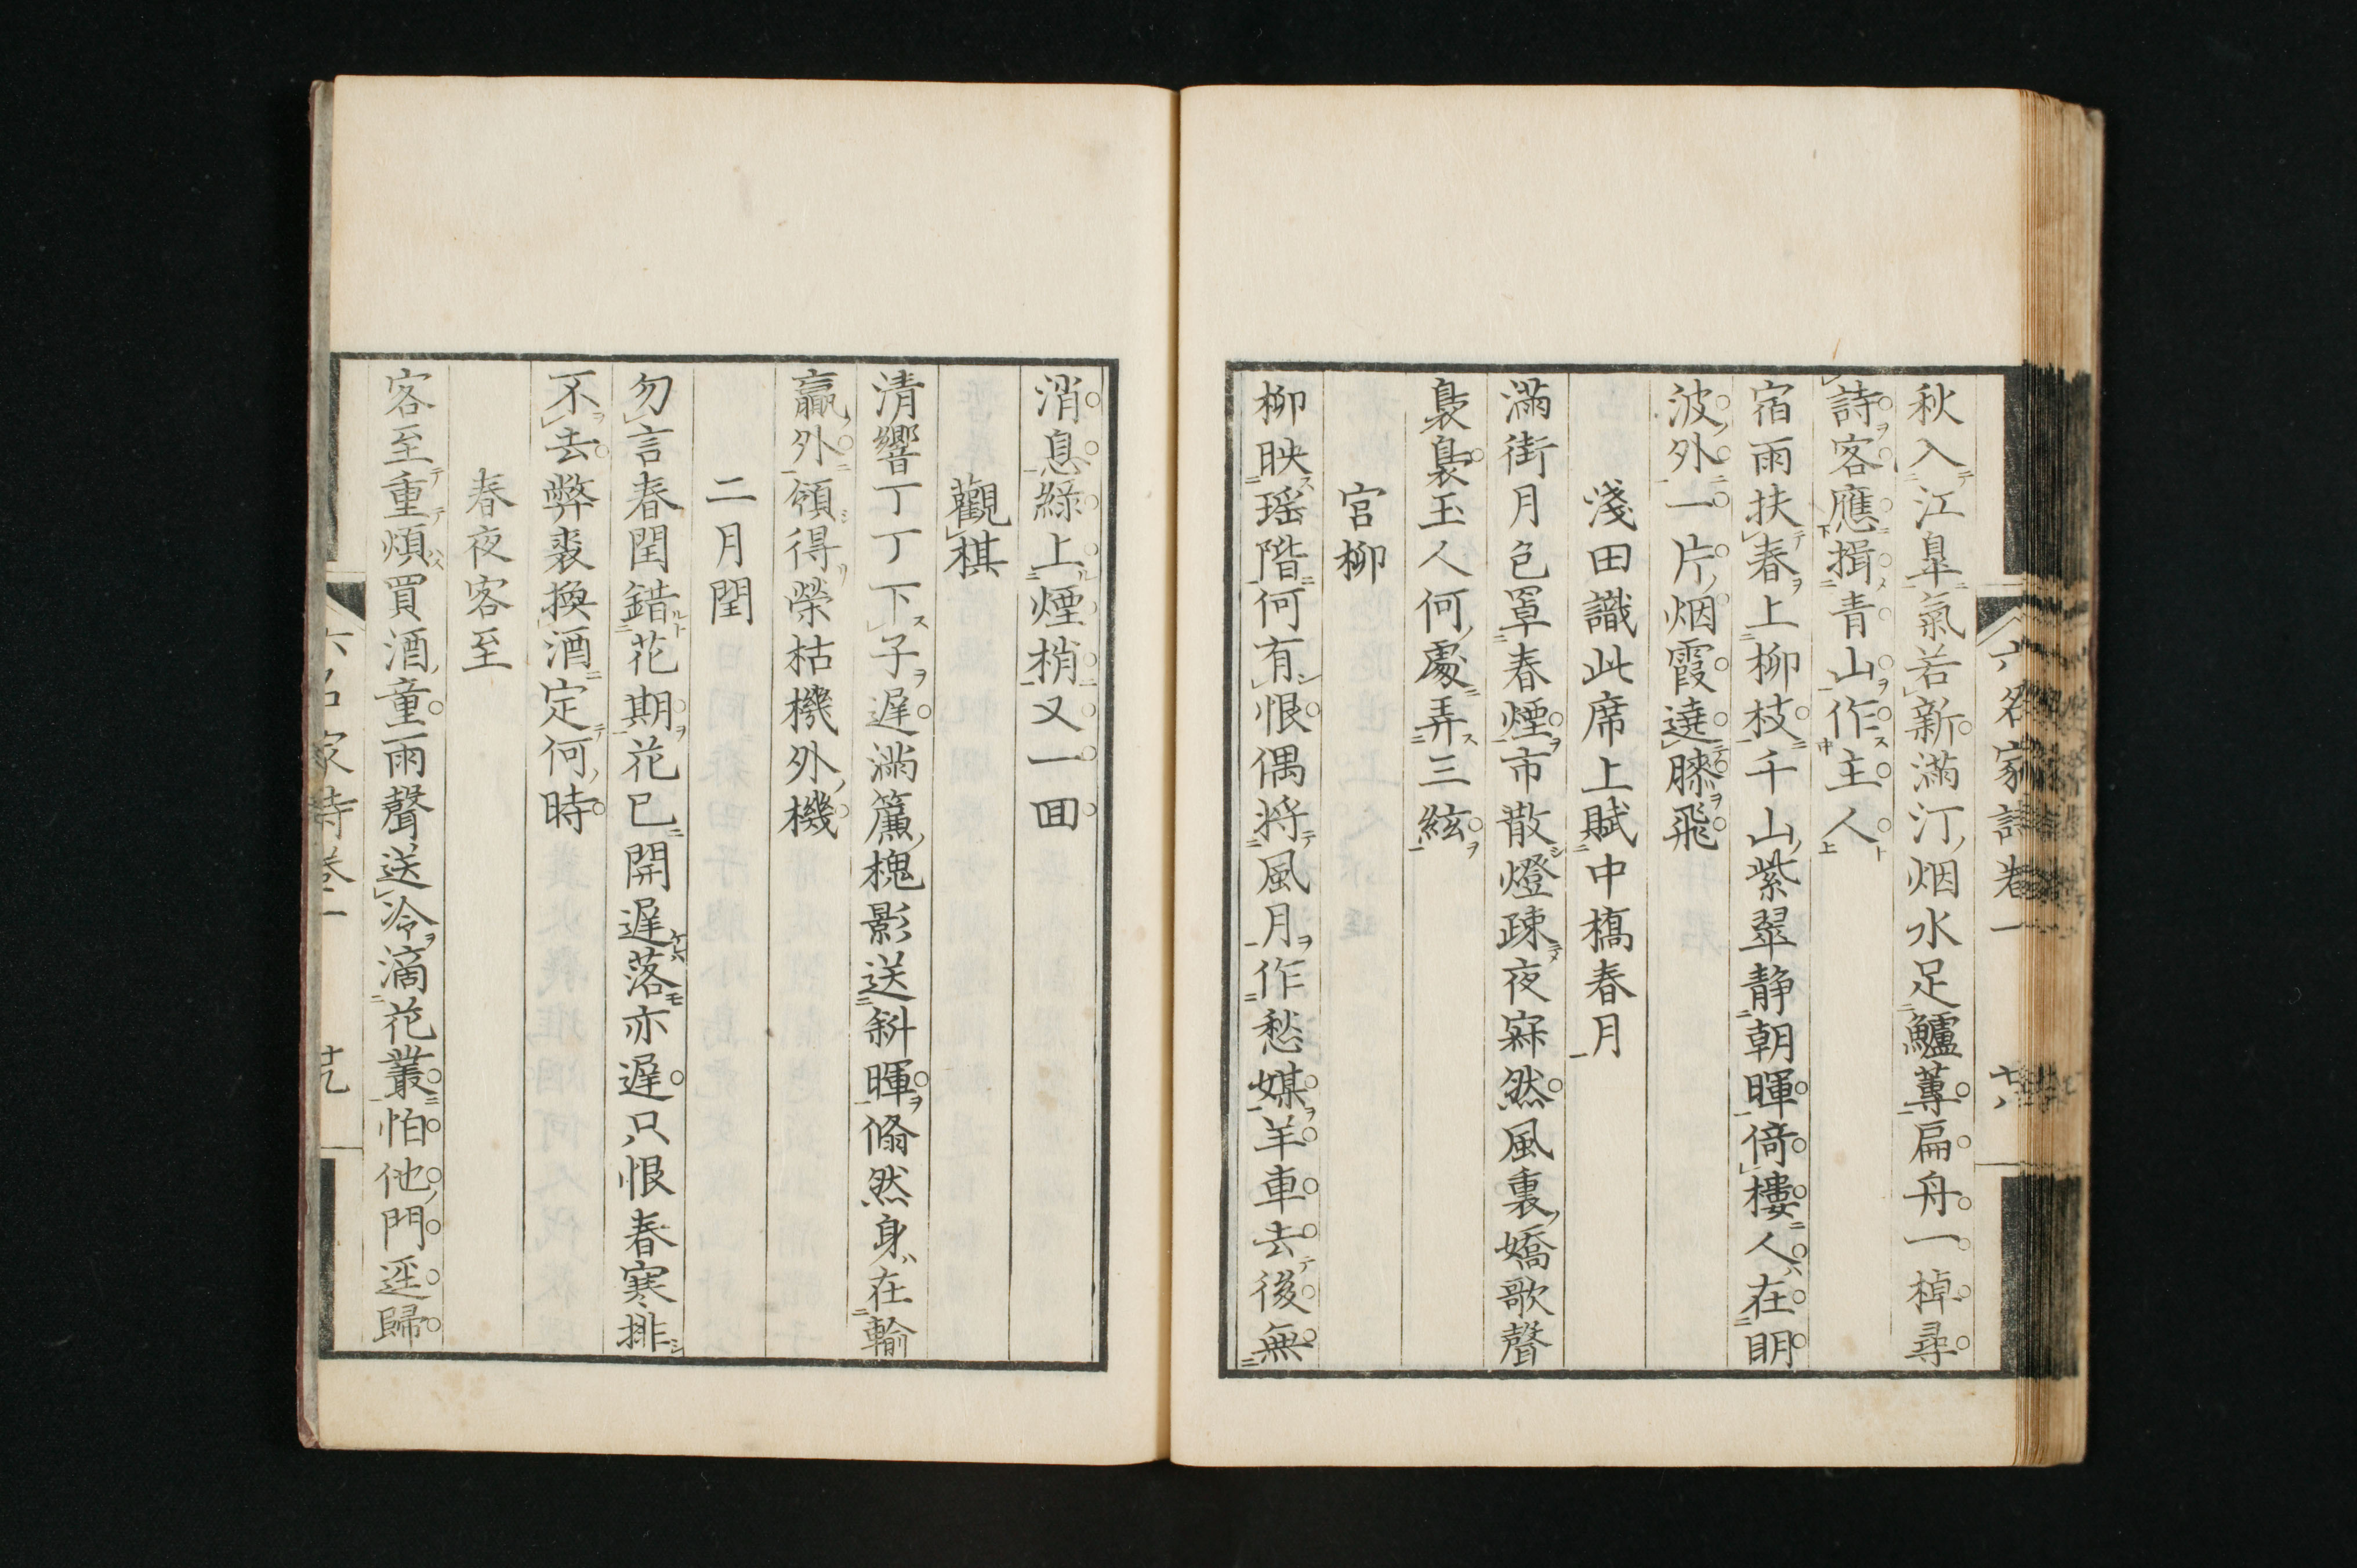 六名家詩卷一
秋入江皐氣若新滿汀烟水足鱸蓴扁舟一棹尋
詩客應揖青山作主人
宿雨扶春上柳枝千山紫翠静朝暉倚樓人在明
波外一片烟霞遶膝飛
淺田識此席上賦中橋春月
滿街月色罩春煙市散燈疎夜寂然風裏嬌歌聲
裊裊玉人何處弄三絃
宮柳
柳映瑶階何有恨偶將風月作愁媒羊車去後無
消息綠上煙梢又一回
觀棋
清響丁丁下子遲滿簾槐影送斜暉翛然身在輸
贏外領得榮枯機外機
二月閏
勿言春閏錯花期花已開遲落亦遲只恨春寒排
不去弊裘換酒定何時
春夜客至
客至重煩買酒童雨聲送冷滴花叢怕他門逕歸
六名家詩卷一